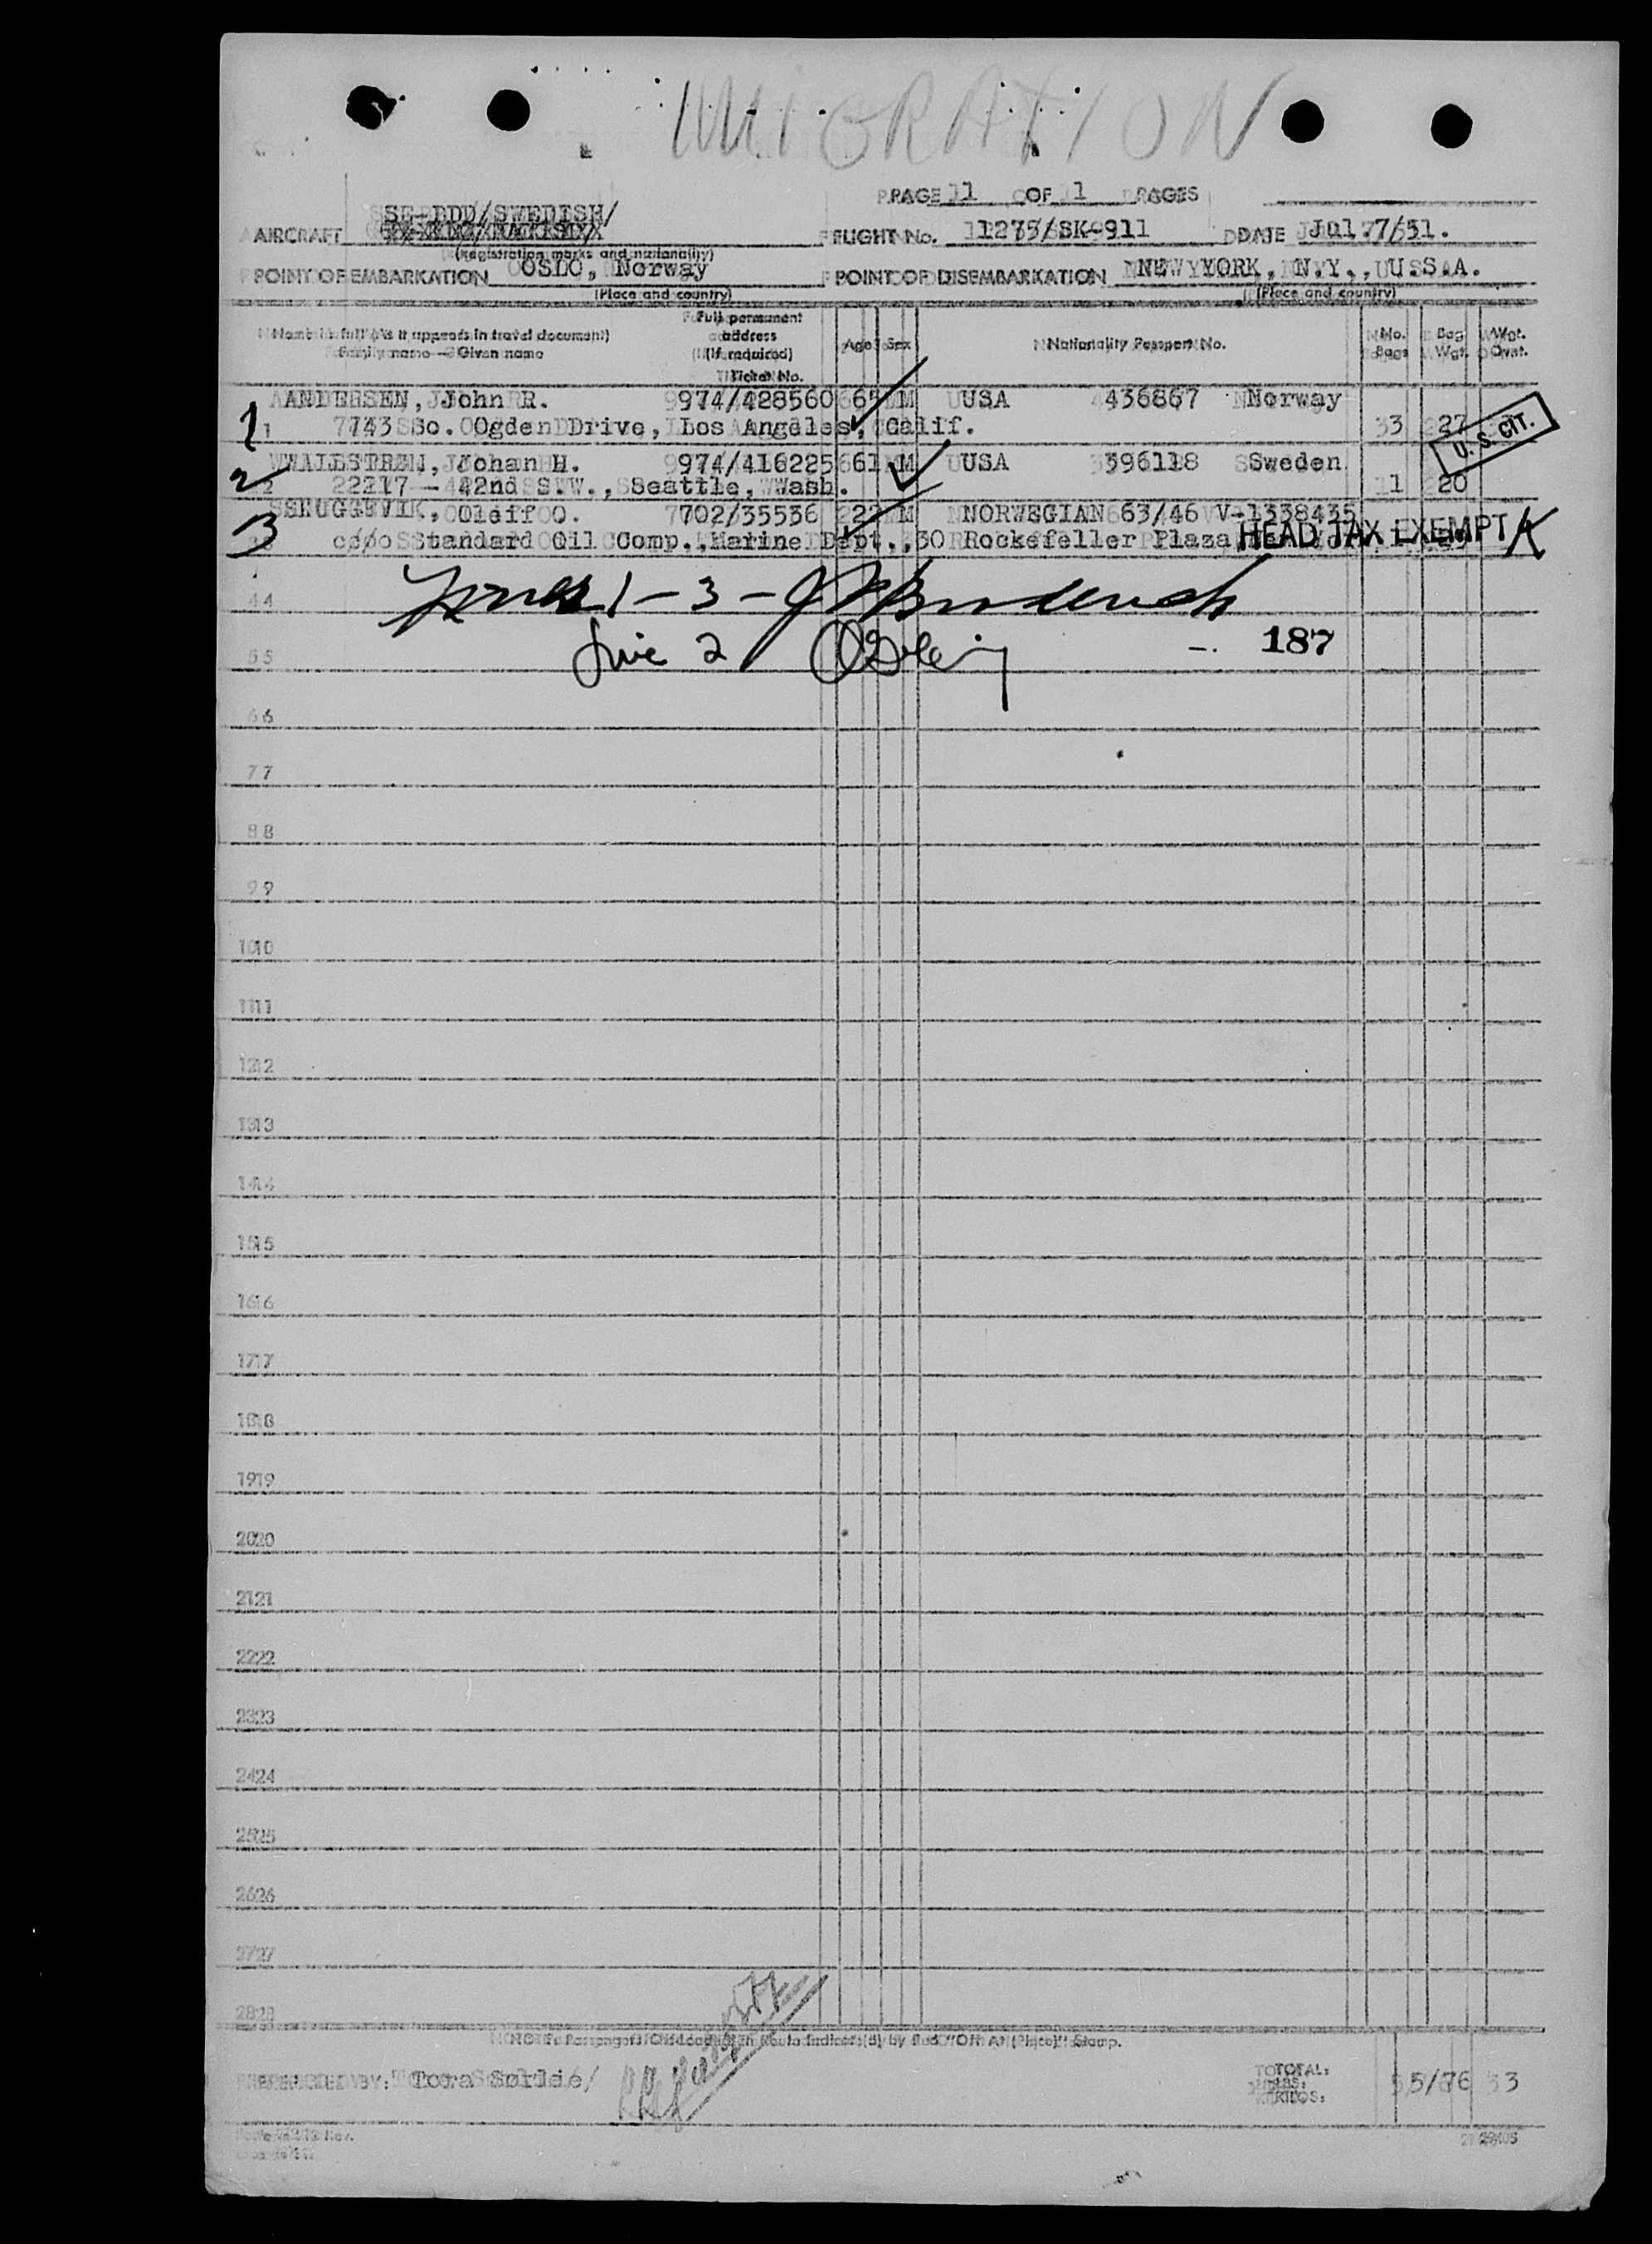 IMIGRATION
PAGE 1 OF 1 PAGES
SE-BDD/SWEDISH/
AIRCRAFT FLIGHT No. 1275/SK-911 DATE Jul.7/51.
(Registration marks and nationality)
POINT OF EMBARKATION OSLO, Norway POINT OF DISEMBARKATION NEW YORK, N.Y., U.S.A.
(Place and country) (Place and country)
Name in full (As it appears in travel document)
Family name — Given name
Full permanent address (If required) Ticket No.
Age Sex Nationality Passport No. No. Bags Bag Wgt. Wgt.
ANDERSEN, John R. 974/428560 65 M USA 436867 Norway
1 1 743 So. Ogden Drive, Los Angeles, Calif. 3 27
U. S. CIT.
WALLSTREN, Johan H. 974/416225 61 M USA 396118 Sweden
2 2 2217 - 42nd S.W., Seattle, Wash. 1 20
SKUGGEVIK, Oleif O. 702/35536 22 M NORWEGIAN 63/46 V-1338435
3 3 c/o Standard Oil Comp., Marine Dept., 30 Rockefeller Plaza, HEAD TAX EXEMPT
4 1-3-
5 Line 2 187
6
7
8
9
10
11
12
13
14
15
16
17
18
19
20
21
22
23
24
25
26
27
28
NOTE: Passengers Offloaded En Route Indicated by Red "Off At (Place)" Stamp.
BY: Tora Sørlie/ TOTAL: 5/76 3
LBS.
KILOS.